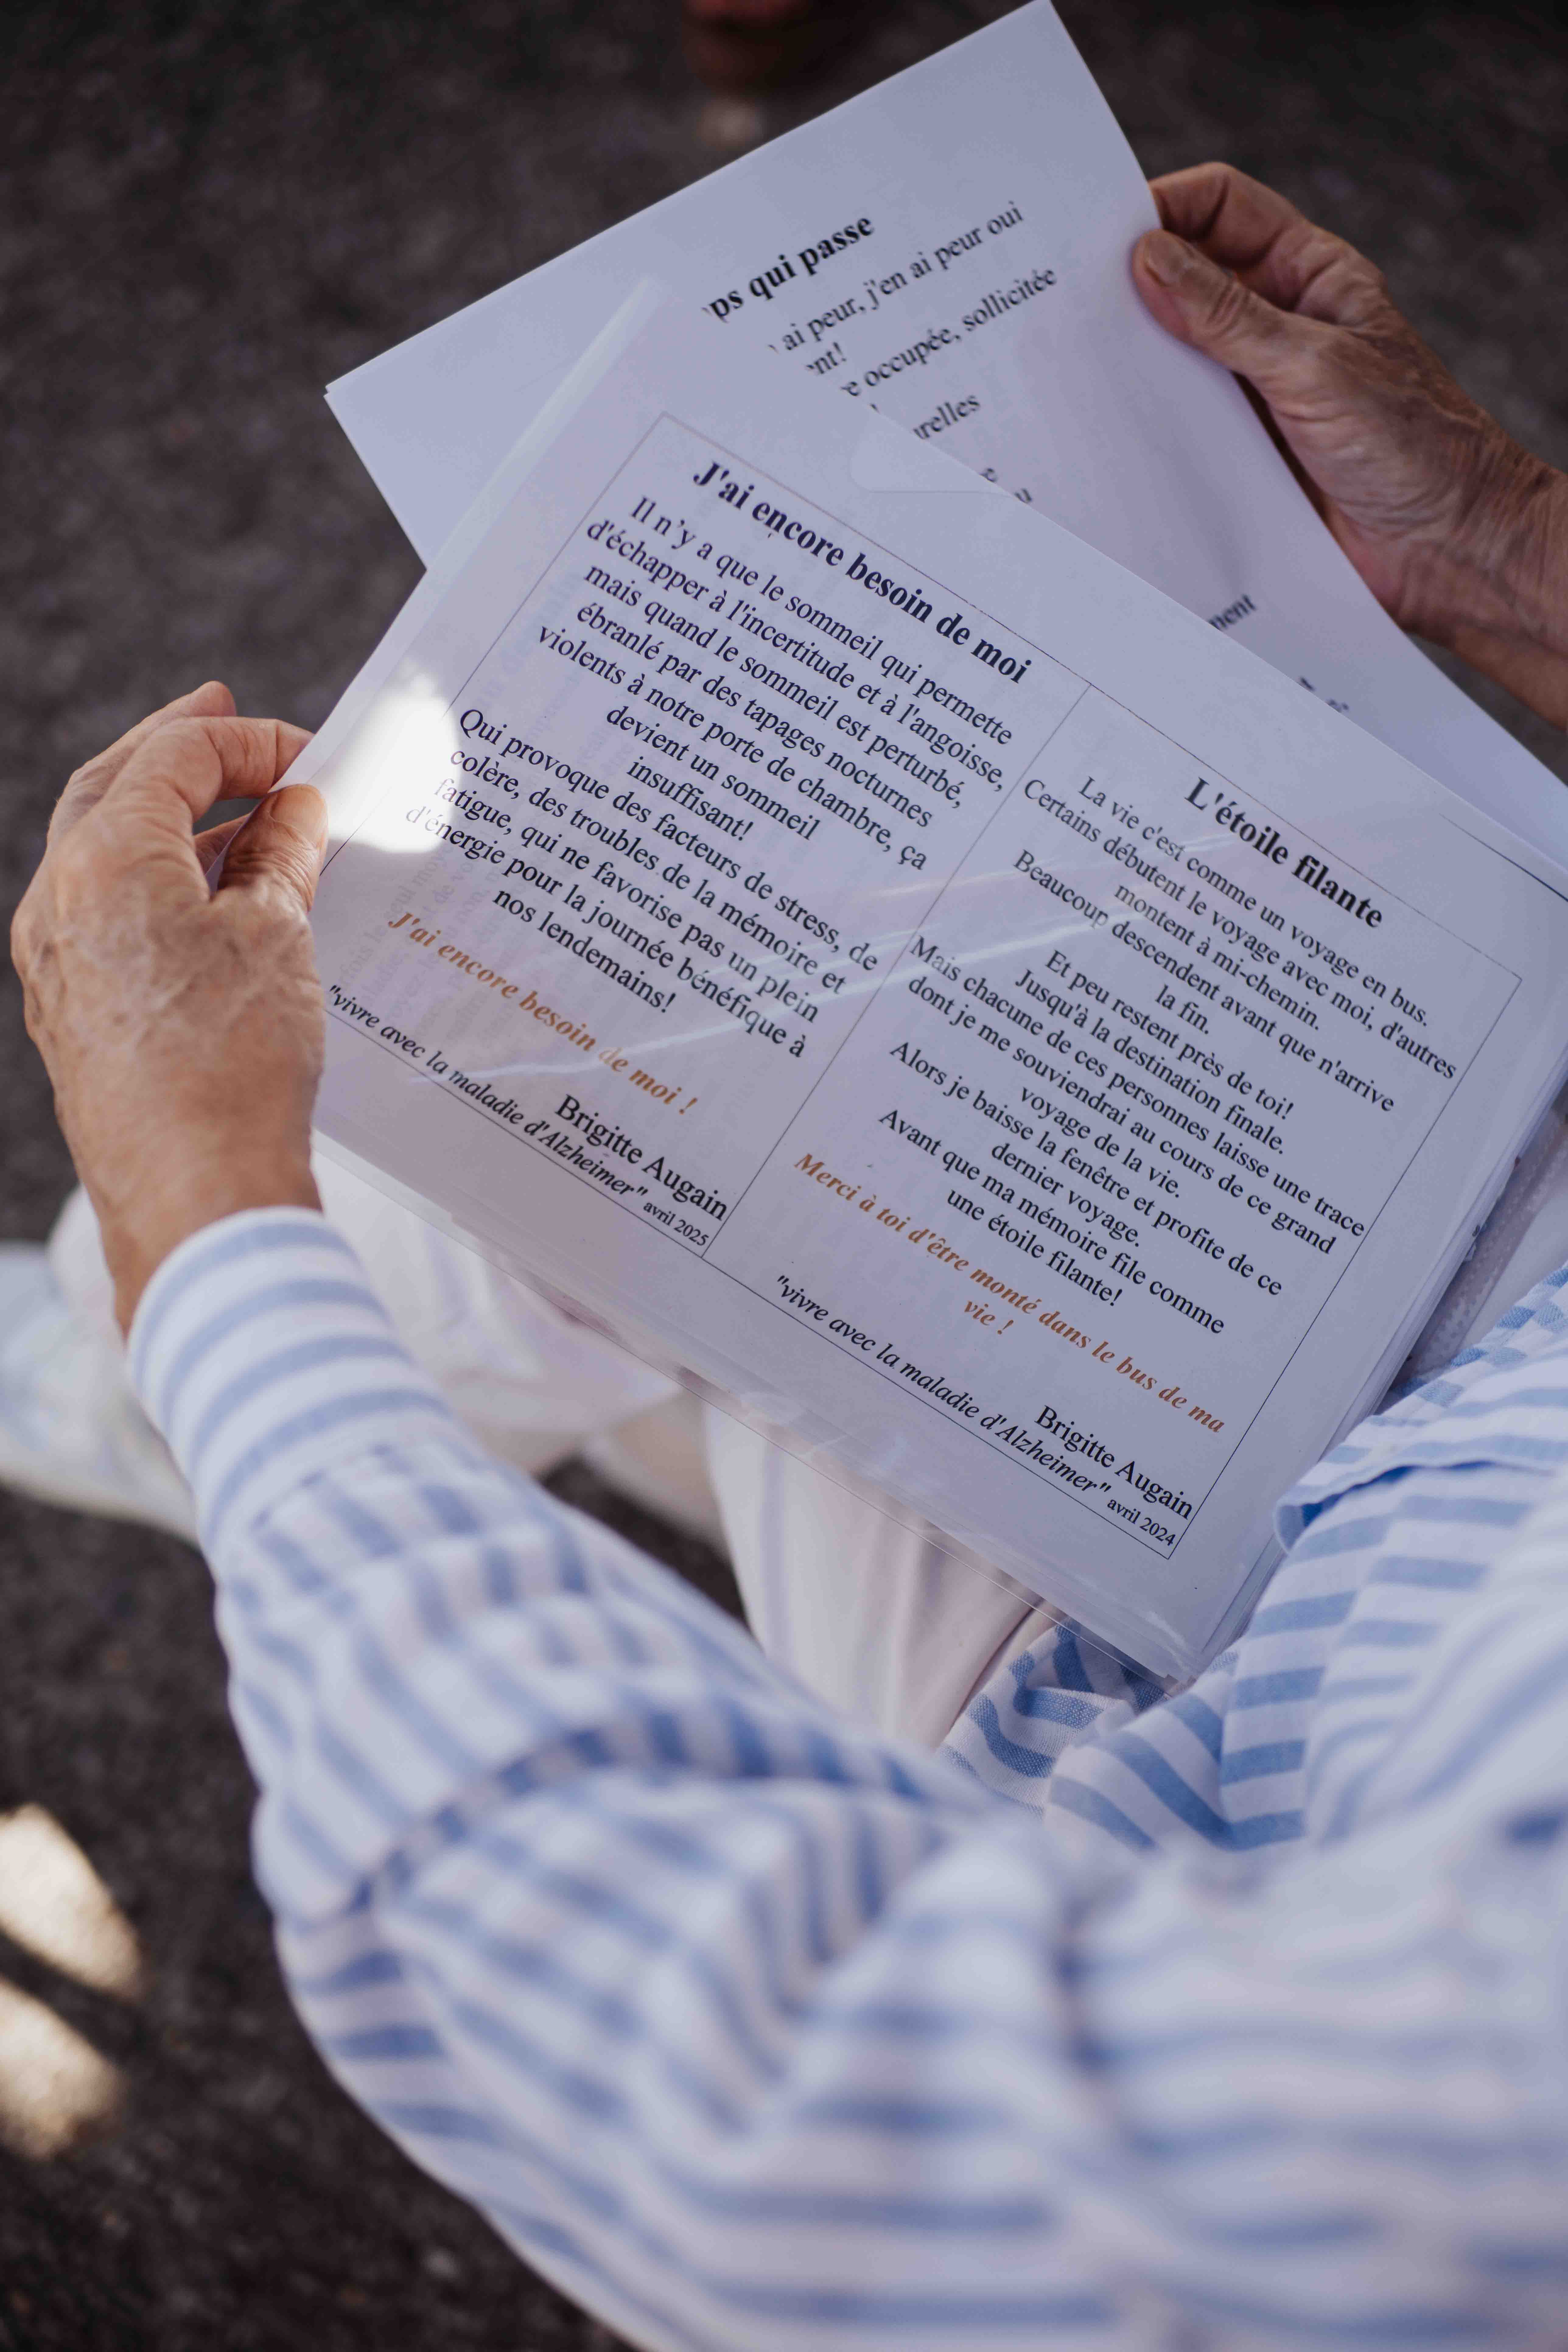 qui passe
ai peur, j'en ai peur oui
occupée, sollicitée
J'ai encore besoin de moi
Il n'y a que le sommeil qui permette
d'échapper à l'incertitude et à l'angoisse,
mais quand le sommeil est perturbé,
ébranlé par des tapages nocturnes
violents à notre porte de chambre, ça
devient un sommeil
insuffisant!
Qui provoque des facteurs de stress, de
colère, des troubles de la mémoire et
fatigue, qui ne favorise pas un plein
d'énergie pour la journée bénéfique à
nos lendemains!
J'ai encore besoin de moi !
Brigitte Augain
"vivre avec la maladie d'Alzheimer" avril 2025
L'étoile filante
La vie c'est comme un voyage en bus.
Certains débutent le voyage avec moi, d'autres
montent à mi-chemin.
Beaucoup descendent avant que n'arrive
la fin.
Et peu restent près de toi!
Jusqu'à la destination finale.
Mais chacune de ces personnes laisse une trace
dont je me souviendrai au cours de ce grand
voyage de la vie.
Alors je baisse la fenêtre et profite de ce
dernier voyage.
Avant que ma mémoire file comme
une étoile filante!
Merci à toi d'être monté dans le bus de ma
vie !
Brigitte Augain
"vivre avec la maladie d'Alzheimer" avril 2024